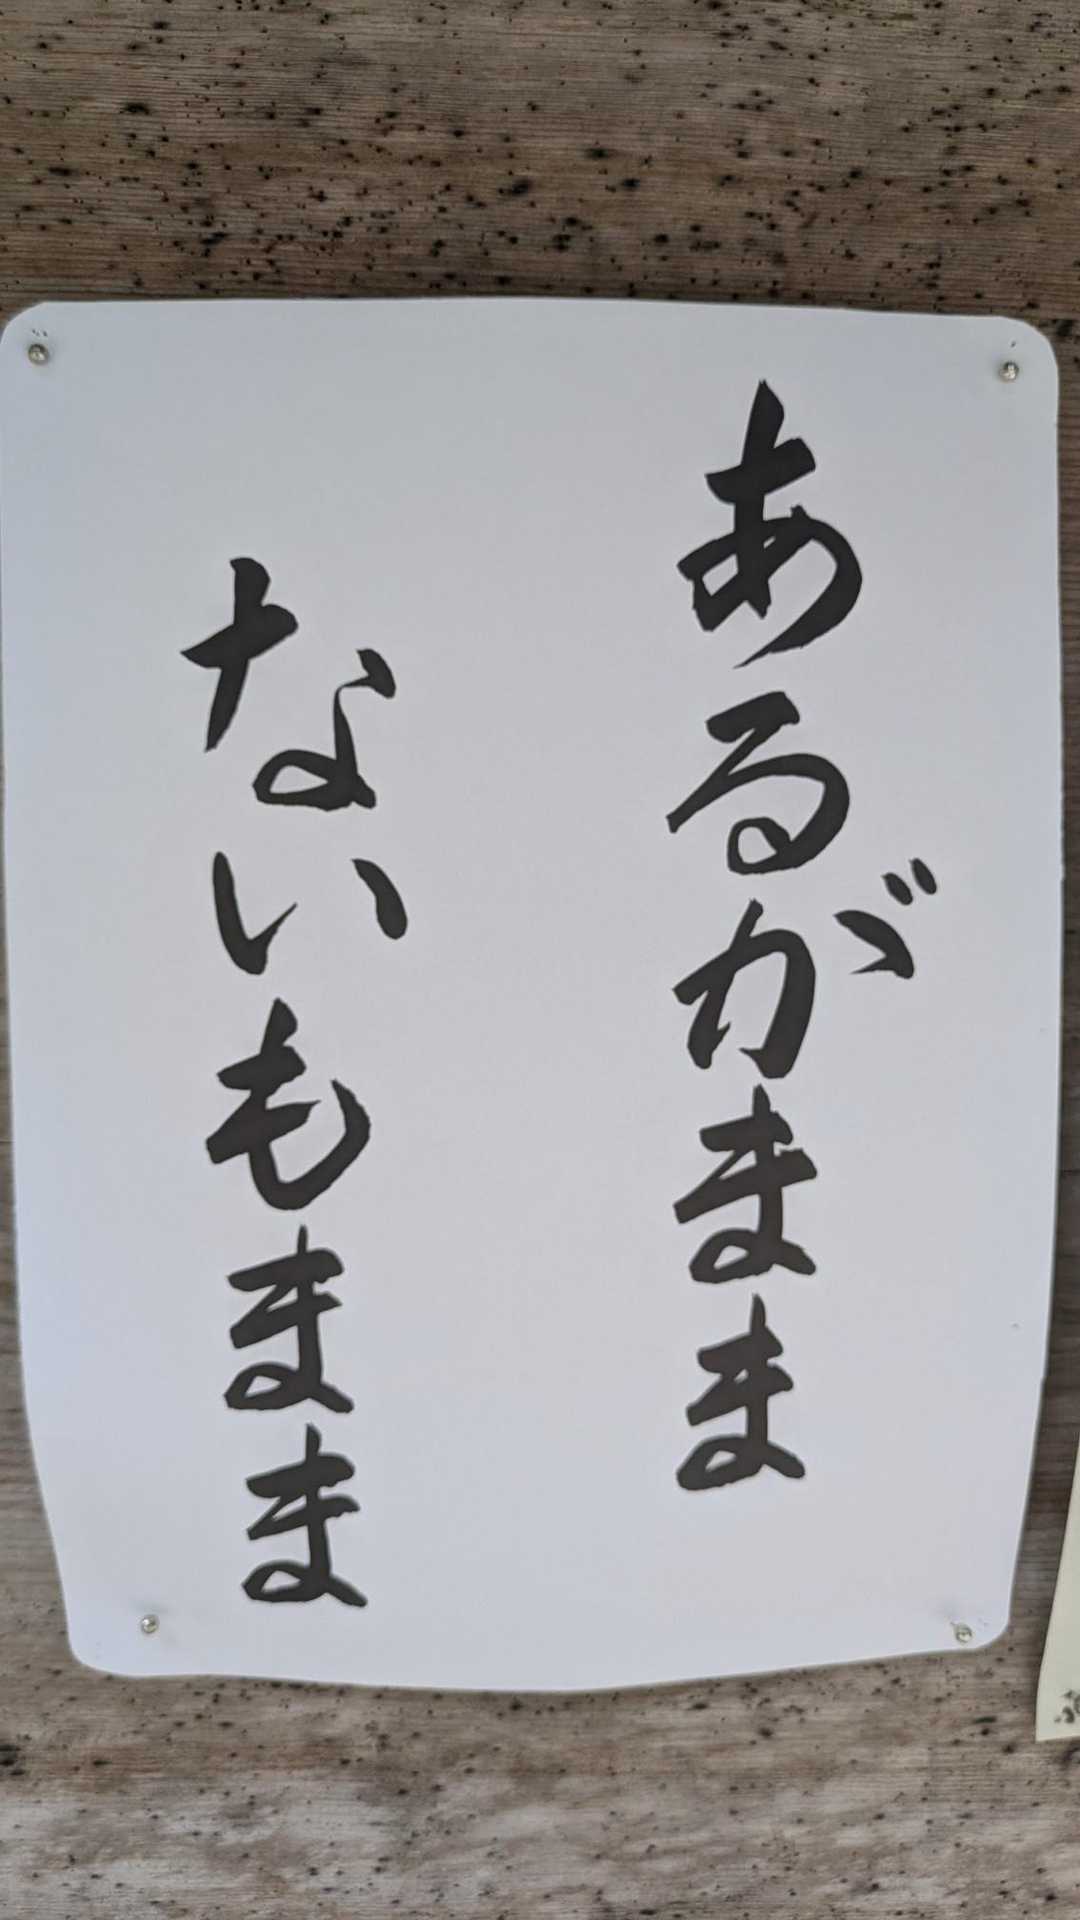 あるがまま
ないもまま